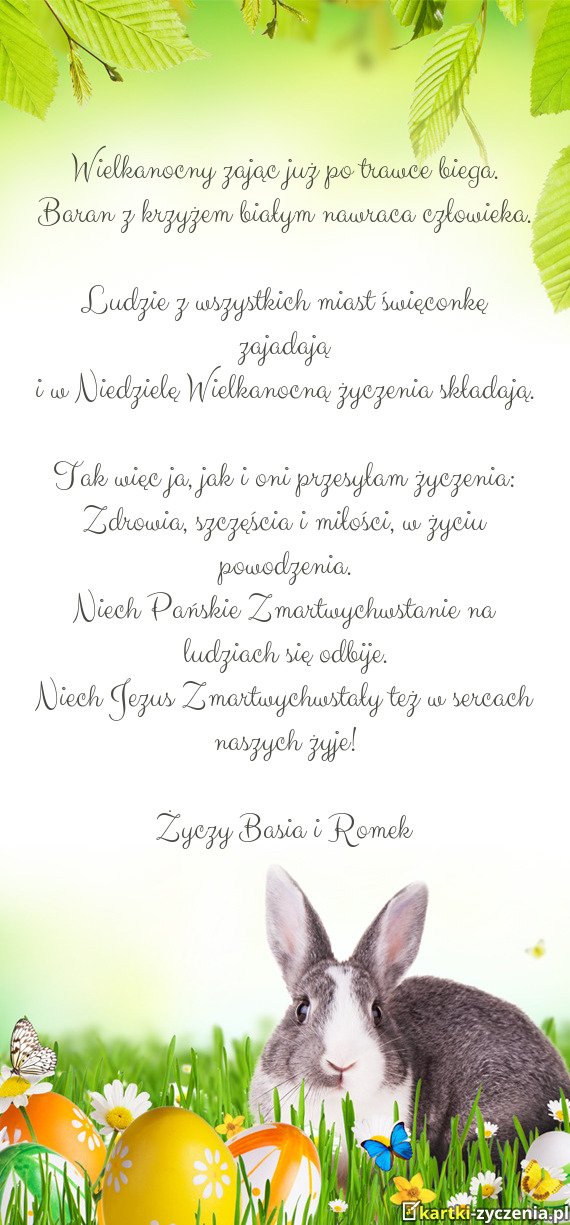 Wielkanocny zając już po trawce biega.
Baran z krzyżem białym nawraca człowieka.
Ludzie z wszystkich miast święconkę
zajadają
i w Niedzielę Wielkanocną życzenia składają.
Tak więc ja, jak i oni przesyłam życzenia:
Zdrowia, szczęścia i miłości, w życiu
powodzenia.
Niech Pańskie Zmartwychwstanie na
ludziach się odbije.
Niech Jezus Zmartwychwstały też w sercach
naszych żyje!
Życzy Basia i Romek
kartki-zyczenia.pl